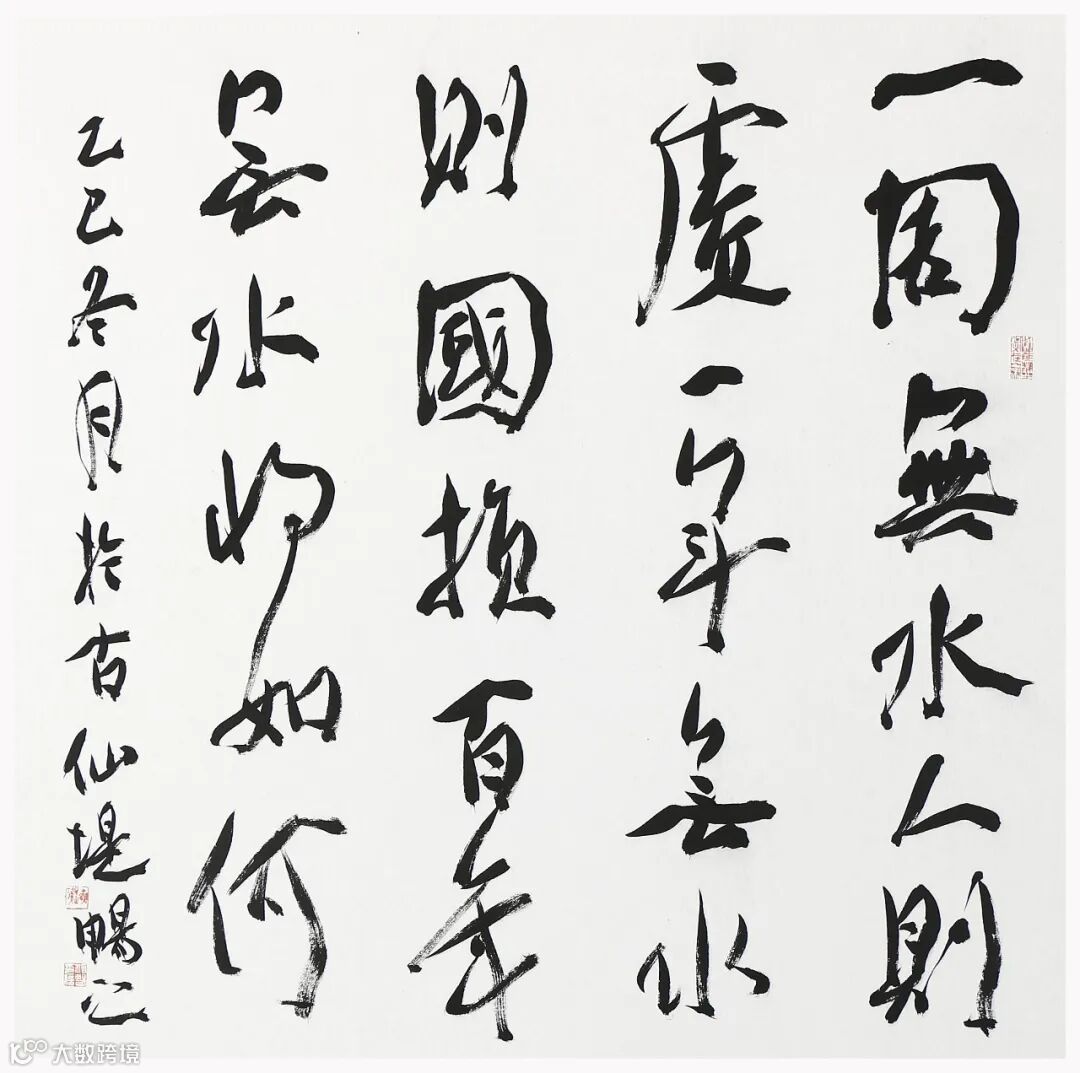 一周無水人則
一年無水
則國損百年
無水將如何
乙巳冬月於古仙堤暢公
大数跨境